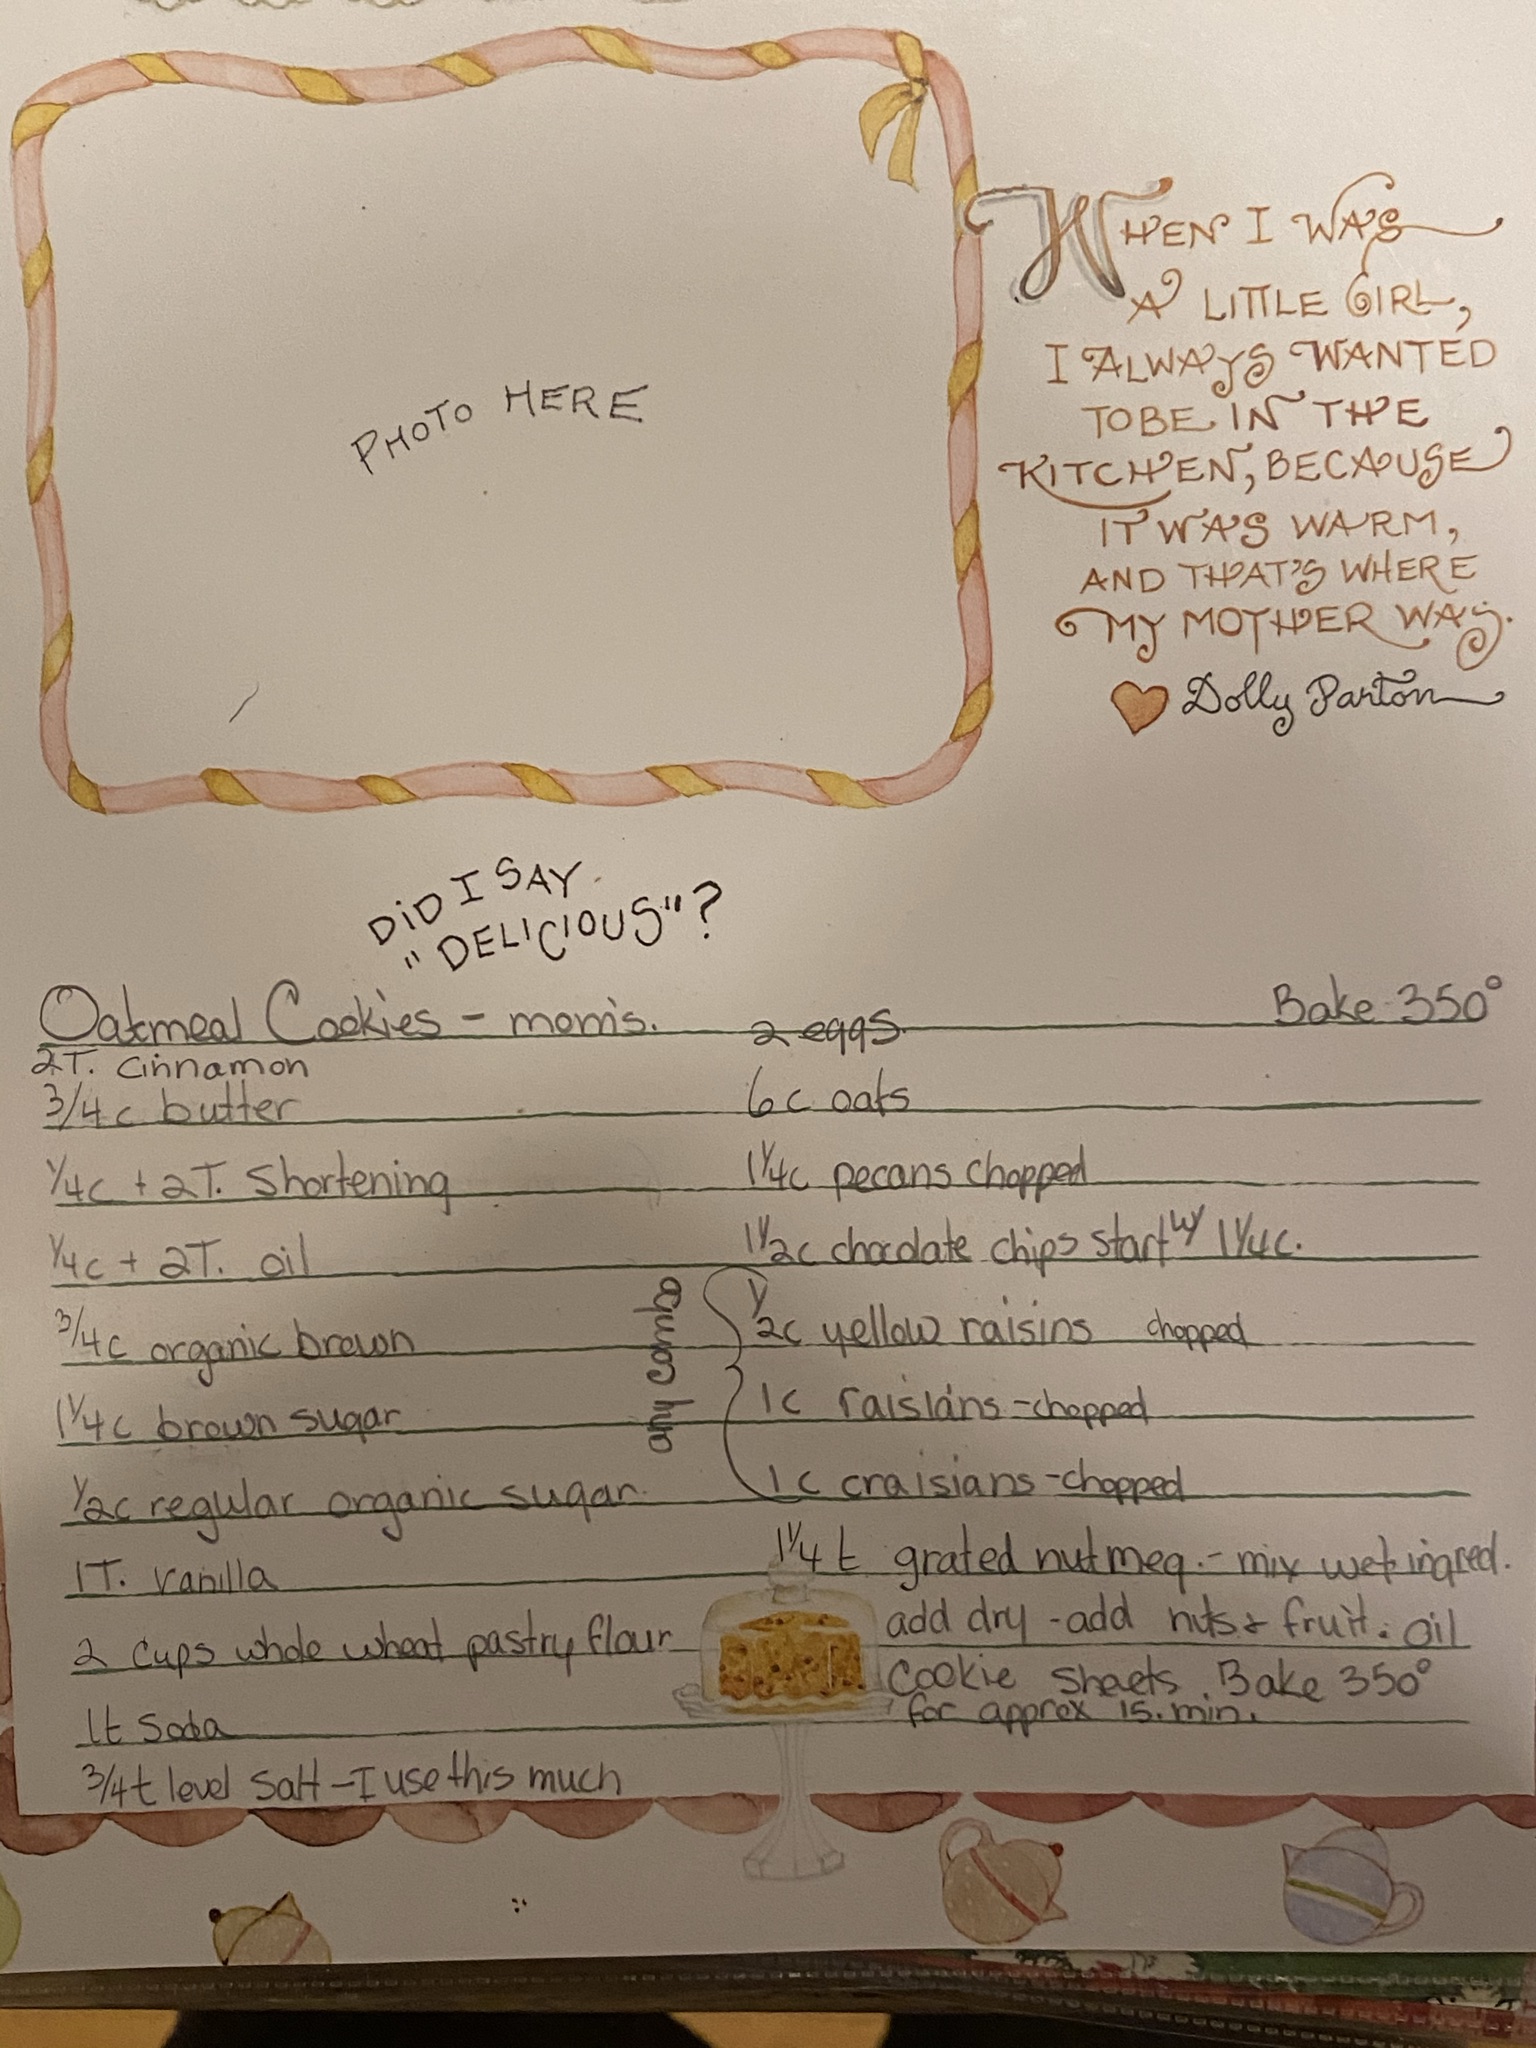 WHEN I WAS
A LITTLE GIRL,
I ALWAYS WANTED
TO BE IN THE
KITCHEN, BECAUSE
IT WAS WARM,
AND THAT'S WHERE
MY MOTHER WAS.
Dolly Parton
PHOTO HERE
DID I SAY
"DELICIOUS"?
Oatmeal Cookies - mom's.
2T. cinnamon
3/4c butter
1/4c + 2T. Shortening
1/4c + 2T. oil
3/4c organic brown
1 1/4c brown sugar
1/2c regular organic sugar.
1T. vanilla
2 cups whole wheat pastry flour
1t soda
3/4t level salt - I use this much
Bake 350°
2 eggs.
6c oats
1 1/4c pecans chopped
1 1/2c chocolate chips start w/ 1 1/4c.
any combo
1/2c yellow raisins chopped
1c raisians - chopped
1c craisians - chopped
1 1/4 t grated nutmeg. - mix wet ingred.
add dry - add nuts & fruit. oil
cookie sheets. Bake 350°
for approx 15. min.